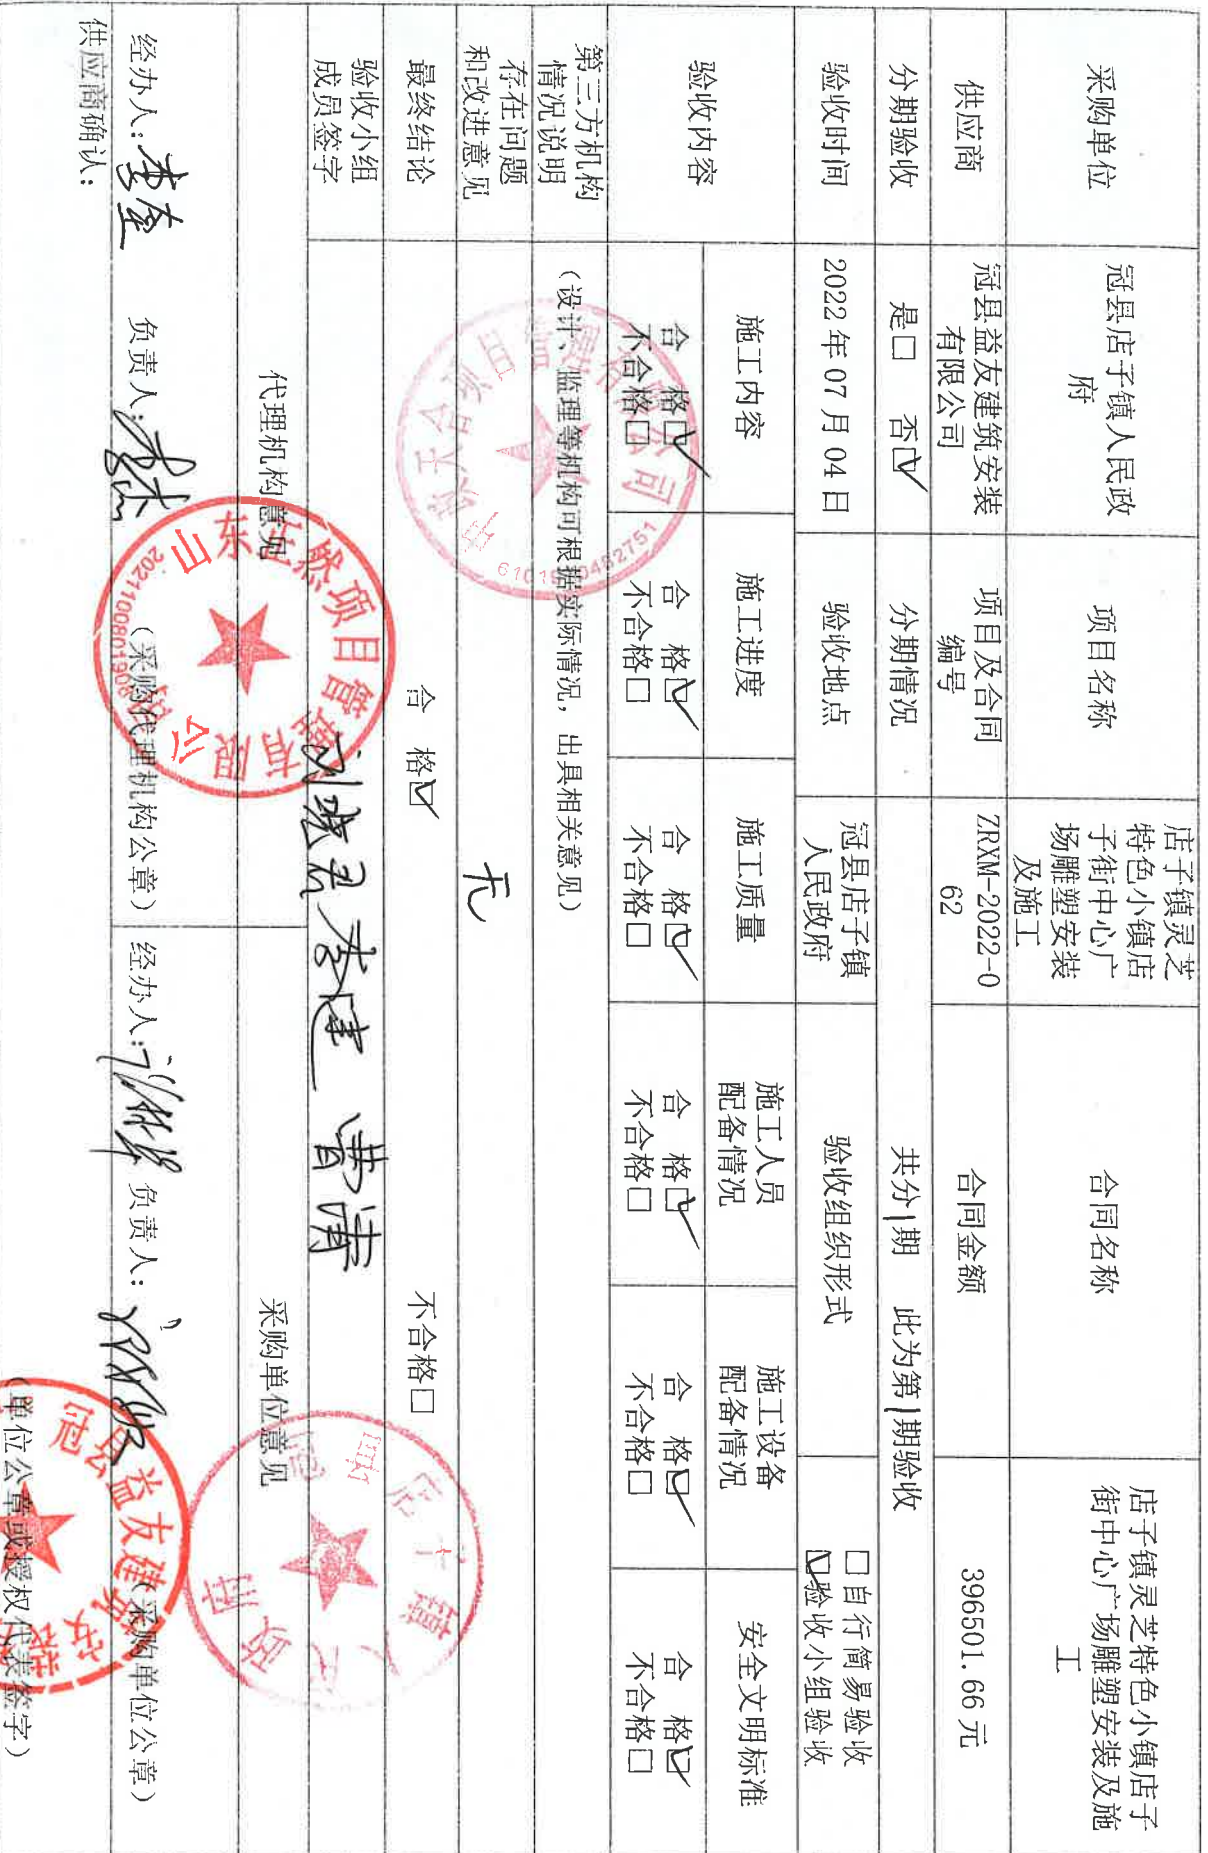 采购单位
冠县店子镇人民政
府
项目名称
店子镇灵芝
特色小镇店
子街中心广
场雕塑安装
及施工
合同名称
店子镇灵芝特色小镇店子
街中心广场雕塑安装及施
工
供应商
冠县益友建筑安装
有限公司
项目及合同
编号
ZRXM-2022-0
62
合同金额
396501.66 元
分期验收
是□ 否☑
分期情况
共分1期 此为第1期验收
验收时间
2022 年 07 月 04 日
验收地点
冠县店子镇
人民政府
验收组织形式
□自行简易验收
☑验收小组验收
验收内容
施工内容
施工进度
施工质量
施工人员
配备情况
施工设备
配备情况
安全文明标准
合 格☑
不合格□
合 格☑
不合格□
合 格☑
不合格□
合 格☑
不合格□
合 格☑
不合格□
合 格☑
不合格□
第三方机构
情况说明
（设计、监理等机构可根据实际情况，出具相关意见）
存在问题
和改进意见
无
最终结论
合 格☑
不合格□
验收小组
成员签字
李建 曹涛
代理机构意见
采购单位意见
经办人：
负责人：
（采购代理机构公章）
经办人：
负责人：
（采购单位公章）
供应商确认：
（单位公章或授权代表签字）
山东正然项目管理有限公司
冠县益友建筑安装